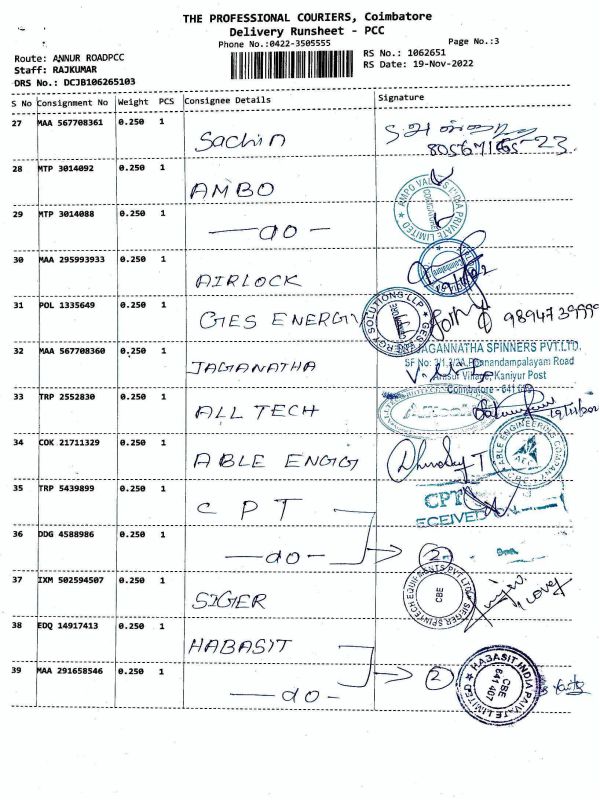 THE PROFESSIONAL COURIERS, Coimbatore
Delivery Runsheet - PCC
Phone No.:0422-3505555
Page No.:3
Route: ANNUR ROADPCC
RS No.: 1062651
Staff: RAJKUMAR
RS Date: 19-Nov-2022
DRS No.: DCJB106265103
S No Consignment No Weight PCS Consignee Details Signature
27 MAA 567708361 0.250 1 Sachin
28 MTP 3014092 0.250 1 AMBO
AMPO VALVES INDIA PRIVATE LIMITED
COIMBATORE
29 MTP 3014088 0.250 1 -do-
30 MAA 295993933 0.250 1 AIRLOCK
Coimbatore
31 POL 1335649 0.250 1 GES ENERGY
GES ENERGY SOLUTIONS LLP
32 MAA 567708360 0.250 1 JAGANATHA
JAGANNATHA SPINNERS PVT.LTD.
Ponnandampalayam Road
Village, Kaniyur Post
Coimbatore - 641
33 TRP 2552830 0.250 1 ALL TECH
34 COK 21711329 0.250 1 ABLE ENGG
ABLE ENGINEERING COMPANY
CBE
35 TRP 5439899 0.250 1 C P T
CPT
RECEIVED ON
36 DDG 4588986 0.250 1 -do- 2
37 IXM 502594507 0.250 1 SIGER
SIEGER SPINTECH EQUIPMENTS PVT LTD
CBE
38 EDQ 14917413 0.250 1 HABASIT
39 MAA 291658546 0.250 1 -do- 2
HABASIT INDIA PRIVATE LIMITED
CBE
641 407